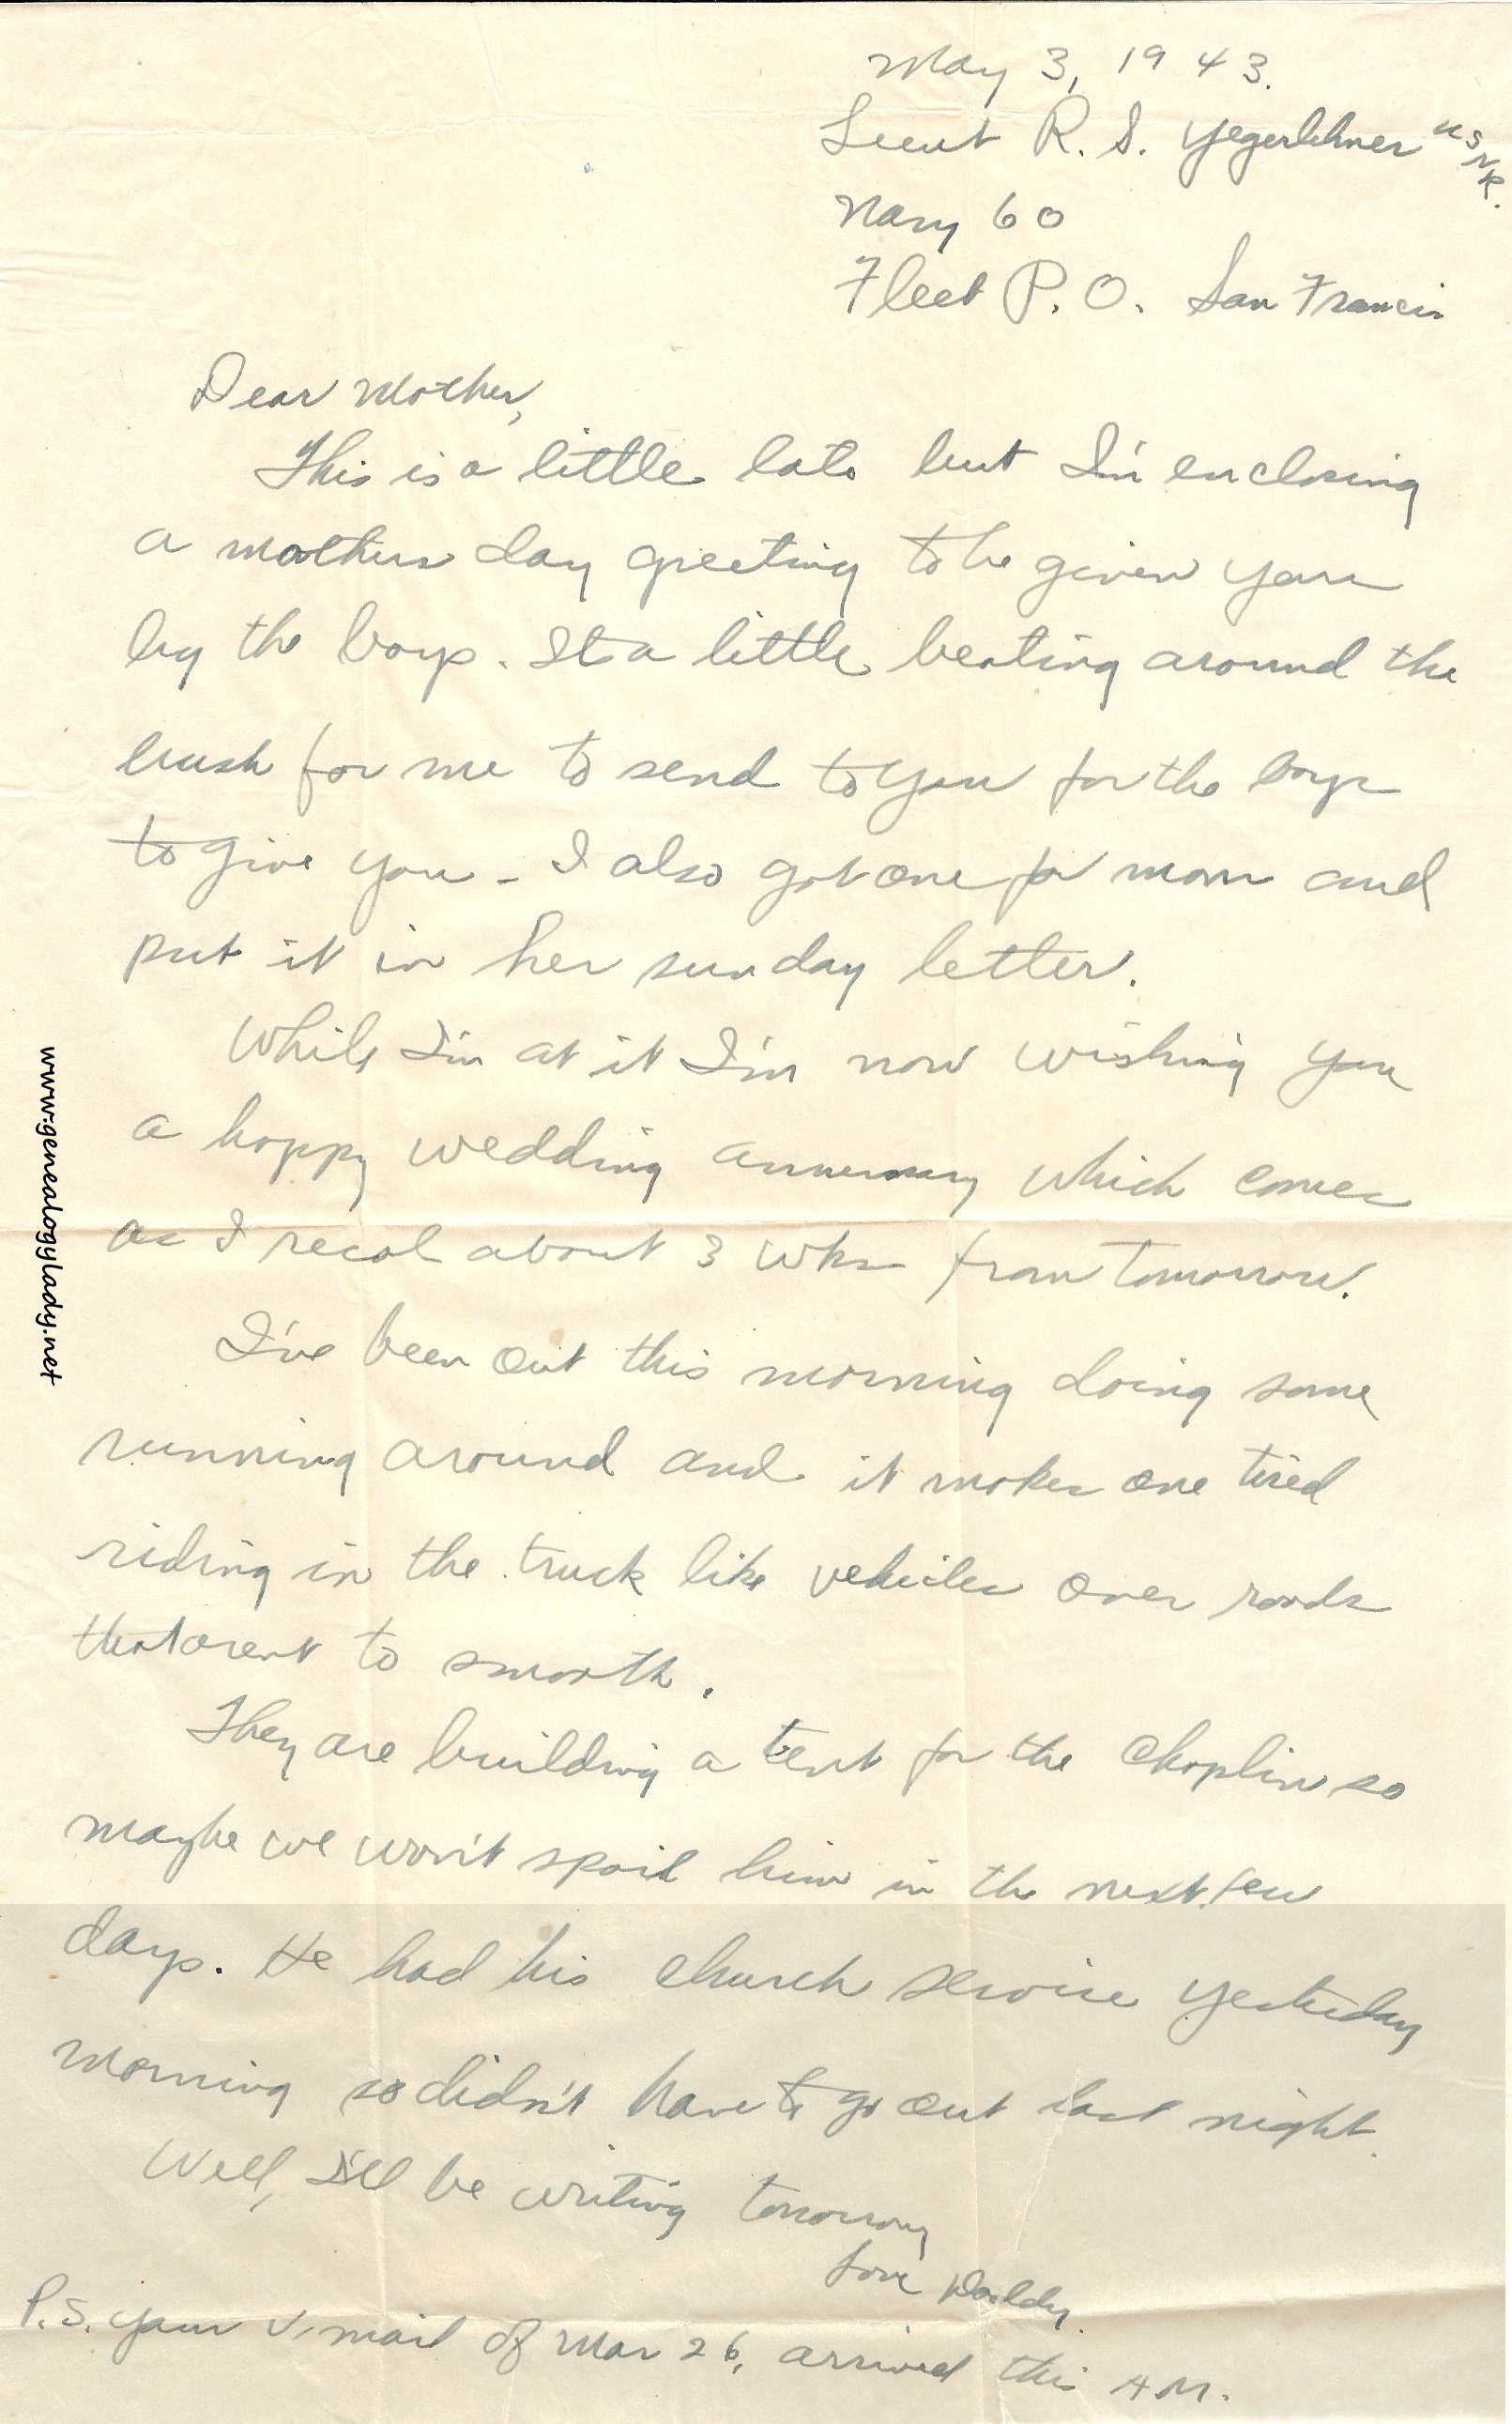 May 3, 1943.
Lieut R. S. Yegerlehner USNR.
Navy 60
Fleet P.O. San Francis
Dear Mother,
This is a little late but I'm enclosing
a mothers day greeting to be given you
by the boys. It a little beating around the
bush for me to send to you for the boys
to give you - I also got one for mom and
put it in her sunday letter.
While I'm at it I'm now wishing you
a happy wedding anniversary which comes
as I recal about 3 wks from tomorrow.
I've been out this morning doing some
running around and it makes one tired
riding in the truck like vehicles over roads
that arent to smooth.
They are building a tent for the chaplin so
maybe we won't spoil him in the next few
days. He had his church service yesterday
morning so didn't have to go out last night.
Well, I'll be writing tomorrow
Love Daddy.
P.S. your V-mail of Mar 26, arrived this A.M.
www.genealogylady.net